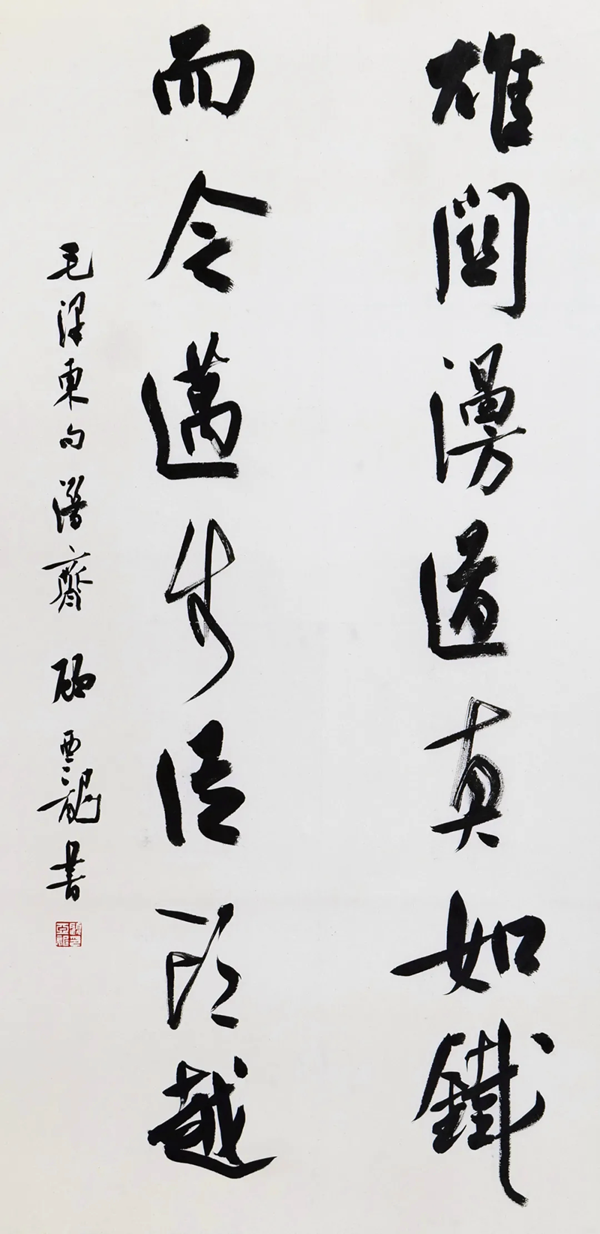 雄關漫道真如鐵
而今邁步從頭越
毛澤東句潛齋顧亞龍書